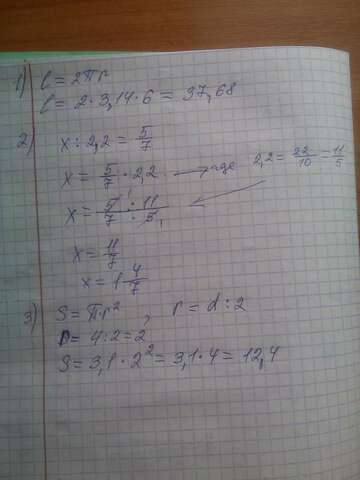 1) l = 2πr
l = 2·3,14·6 = 37,68
2) x : 2,2 = 5/7
x = 5/7 · 2,2 → где 2,2 = 22/10 = 11/5
x = 5 · 11 / 7 · 5
x = 11/7
x = 1 4/7
3) S = π·r², r = d : 2
r = 4:2 = 2
S = 3,1·2² = 3,1·4 = 12,4